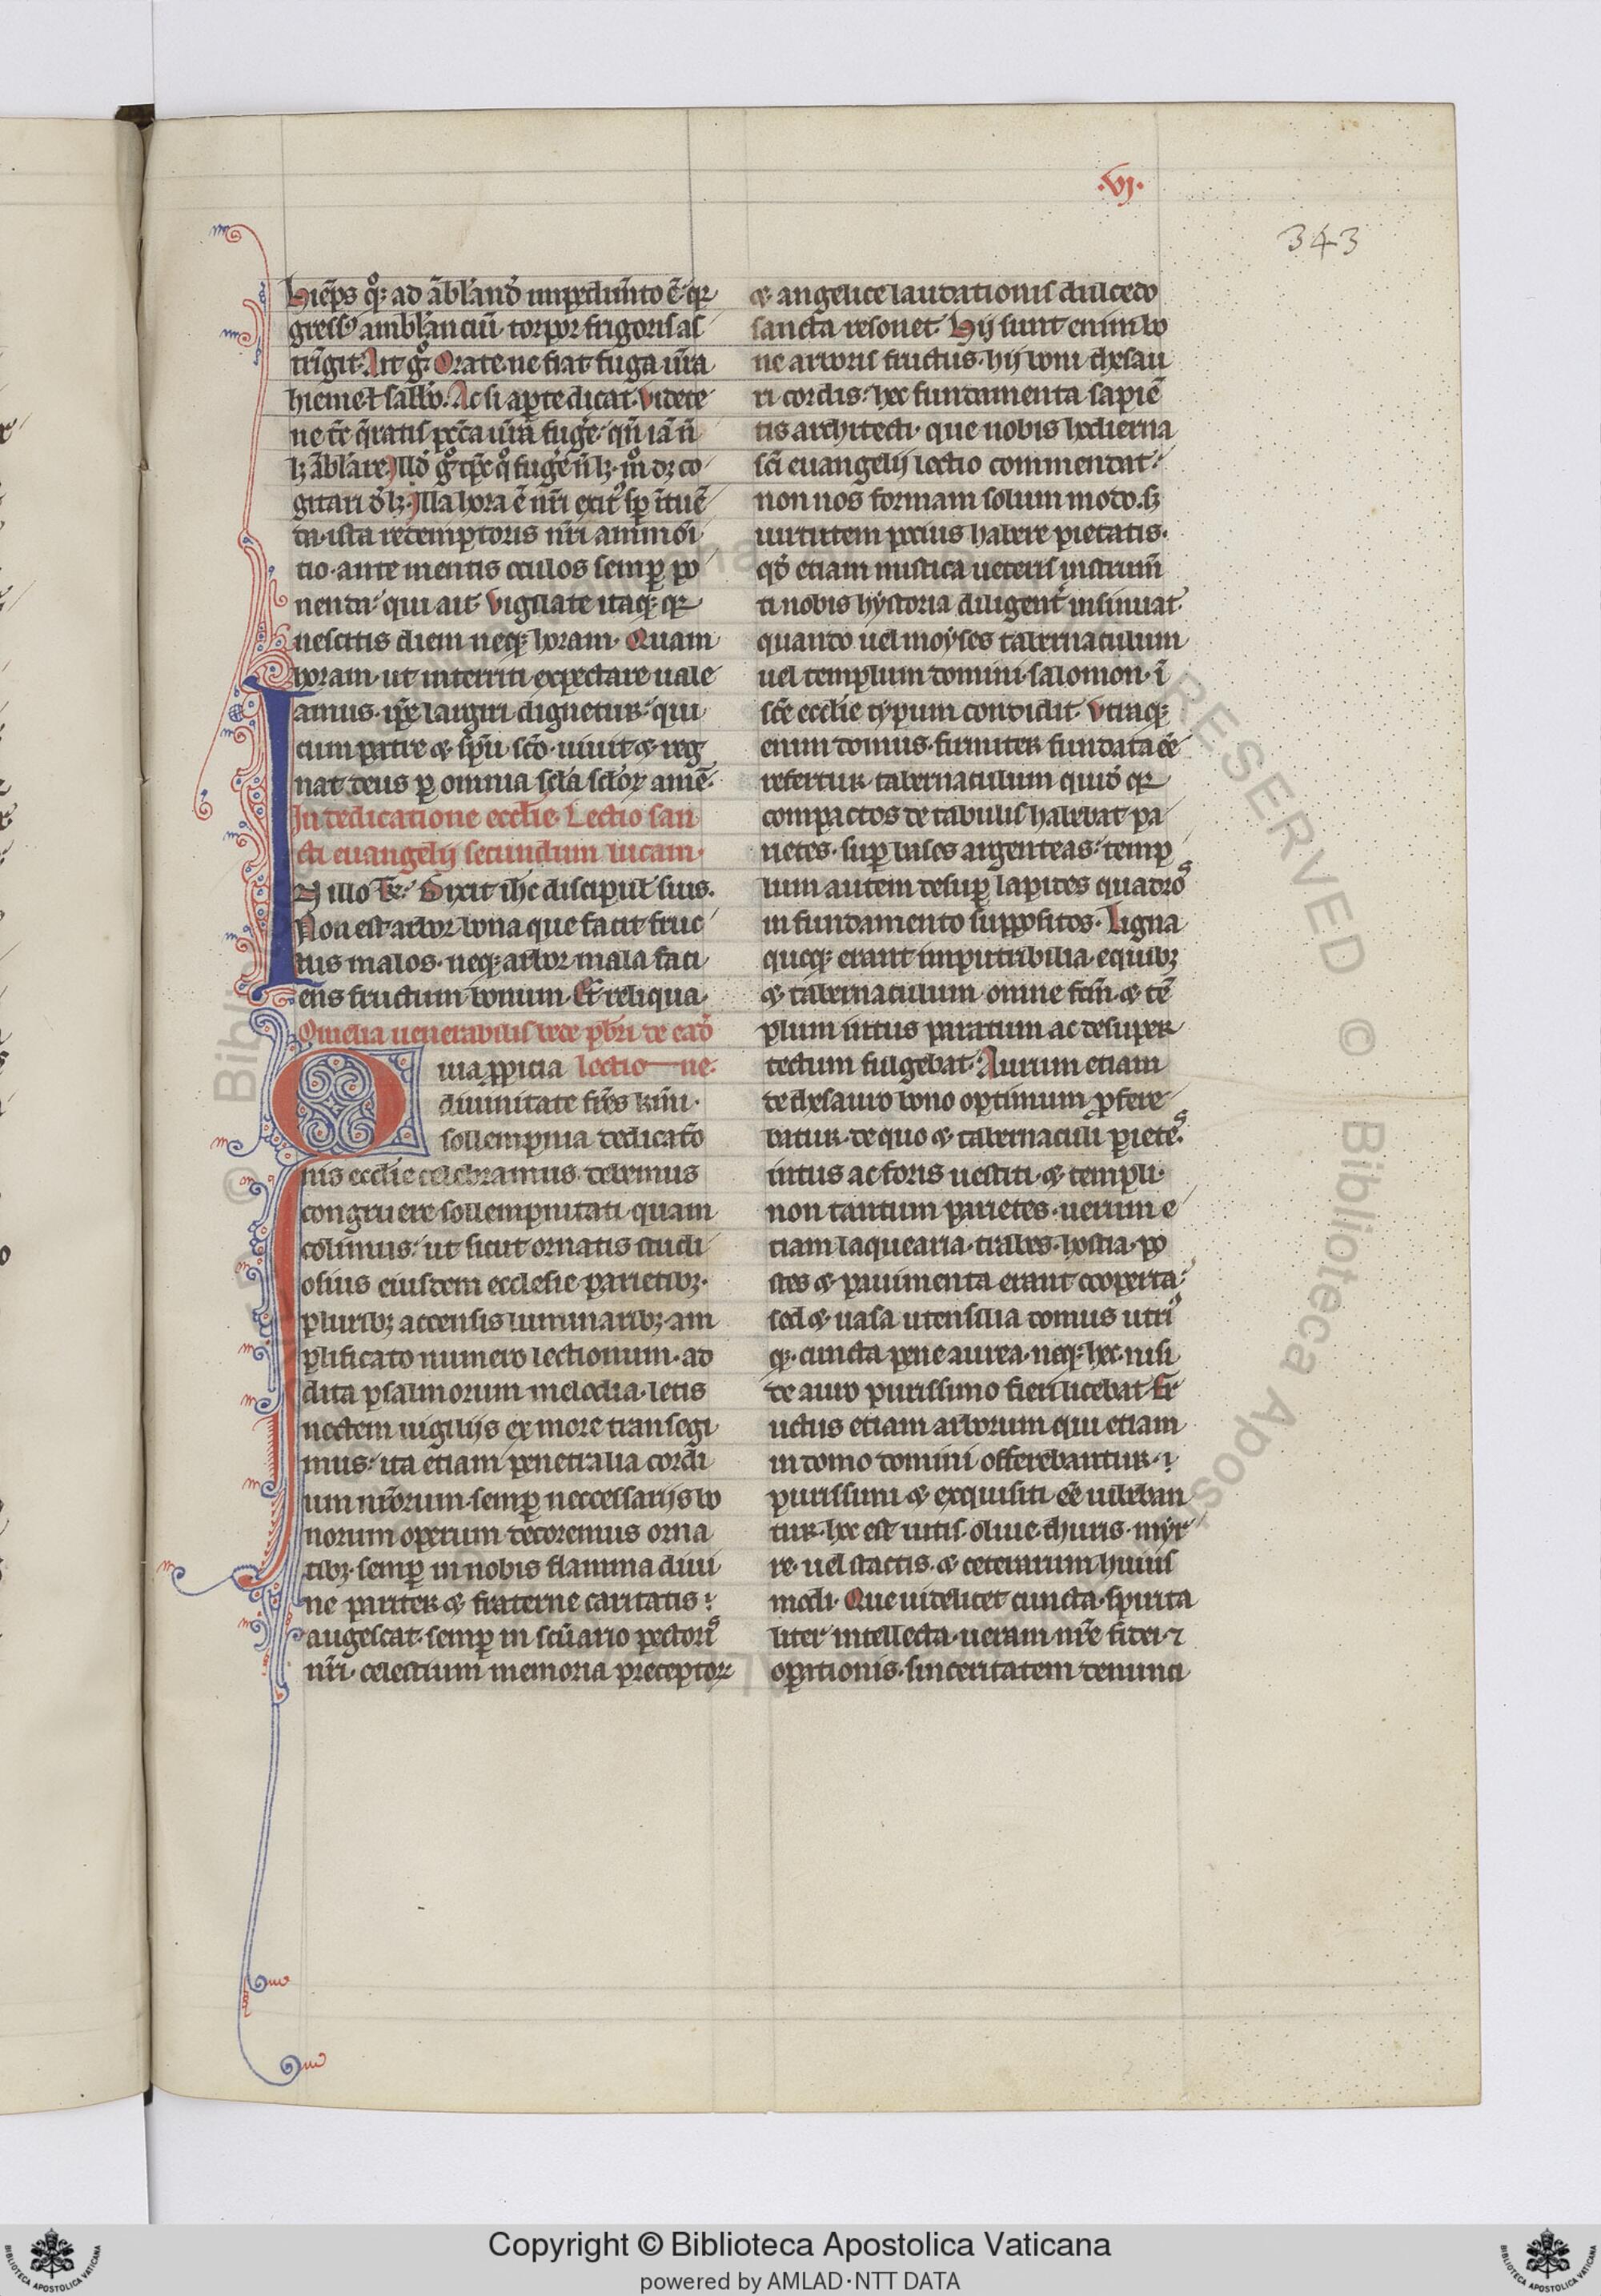 .vj.
343
hiēps qͦꝫ ad ābl'andū inpedim̄to ē· qꝛ
gressꝰ amblanciū· torpor frigoris as
trīgit· Ait gͦ· Orate· ne fiat fuga ur̄a
hieme ul' sabb'o· Ac si aꝑte dicat· Videte
ne tc̄ q̄ratis pctā ur̄a fugͤe· qn̄ iā n̄
lꝫ ābl'are· Illd' gͦ tp̄c qͦ fugͤe n̄ lꝫ· mͦ dꝫ co
gitari
Illa hora ē nr̄i exitꝰ sꝑ ītuē
da· ista redemptoris nr̄i ammōi
tio· ante mentis oculos semꝑ po
nenda· qui ait· Vigilate itaqꝫ qꝛ
nescitis diem neqꝫ horam· Quam
horam· ut interriti expectare uale
amus· ip̄e largiri dignetur· qui
cum patre ⁊ sp̄u sc̄o· uiuit ⁊ reg
nat deus ꝑ omnia sc̄la sc̄loꝝ amē·
In dedicatione eccl'ie· Lectio san
cti euangelij secundum lucam·
N illo t̄r· Dixit ihc̄ discipul' suis·
Non est arbor bona que facit fruc
tus malos· neqꝫ arbor mala faci
ens fructum bonum· Et reliqua·
Omelia uenerabilis bede pb̄ri de eadē
Quia ꝓpicia lectio—ne·
diuinitate fr̄es kr̄mi·
sollempnia dedicatō
nis eccl'ie celebramus· debemus
congruere sollempnitati· quam
colimus· ut sicut ornatis studi
osius eiusdem ecclesie parietibꝫ·
pluribꝫ accensis luminaribꝫ· am
plificato numero lectionum· ad
dita psalmorum melodia· letis
noctem uigilijs ex more transegi
mus· ita etiam penetralia cordi
um nr̄orum· semꝑ neccessarijs bo
norum operum decoremus orna
tibꝫ· semꝑ in nobis flamma diui
ne pariter ⁊ fraterne caritatis·
augescat· semꝑ in scūario pectorꝭ
nr̄i· celestium memoria preceptoꝝ
⁊ angelice laudationis dulcedo
sancta resonet· Hij sunt enim bo
ne arboris fructus· hij boni thesau
ri cordis· hec fundamenta sapiē
tis architecti· que nobis hodierna
sc̄i euangelij lectio commendat·
non nos formam solum modo· sꝫ
uirtutem pocius habere pietatis·
qd' etiam mistica ueteris instrum̄
ti nobis hystoria diligent' insinuat·
quando uel moyses tabernaculum
uel templum domini· salomon· ī
sc̄e eccl'ie typum condidit· Vtraqꝫ
enim domus· firmiter fundata eē
refertur· tabernaculum quid' qꝛ
compactos de tabulis habebat pa
rietes· suꝑ bases argenteas· temp
lum autem desuꝑ lapides quadroꝰ
in fundamento suppositos· Ligna
queqꝫ erant imputribilia· e quibꝫ
⁊ tabernaculum omne fcm̄· ⁊ tē
plum intus paratum ac desuper
tectum fulgebat· Aurum etiam
de thesauro bono optimum ꝓfere
batur· de quo ⁊ tabernaculi ꝑieteꝰ
intus ac foris uestiti· ⁊ templi·
non tantum parietes· uerum e
tiam laquearia· trabes· hostia· po
stes ⁊ pauimenta erant cooperta·
sed ⁊ uasa utensilia domus utriꝰ
qꝫ· cuncta pene aurea· neqꝫ hec· nisi
de auro purissimo fieri licebat· Fr
uctus etiam arborum qui etiam
in domo domini offerebantur·
purissimi ⁊ exquisiti eē iubeban
tur· hoc est uitis· oliue· thuris· myr
re· uel stactis· ⁊ ceterarum huius
modi· Que uidelicet cuncta· spirita
liter intellecta· ueram nr̄e fidei ⁊
oꝑationis· sinceritatem denunci
Copyright © Biblioteca Apostolica Vaticana
powered by AMLAD·NTT DATA